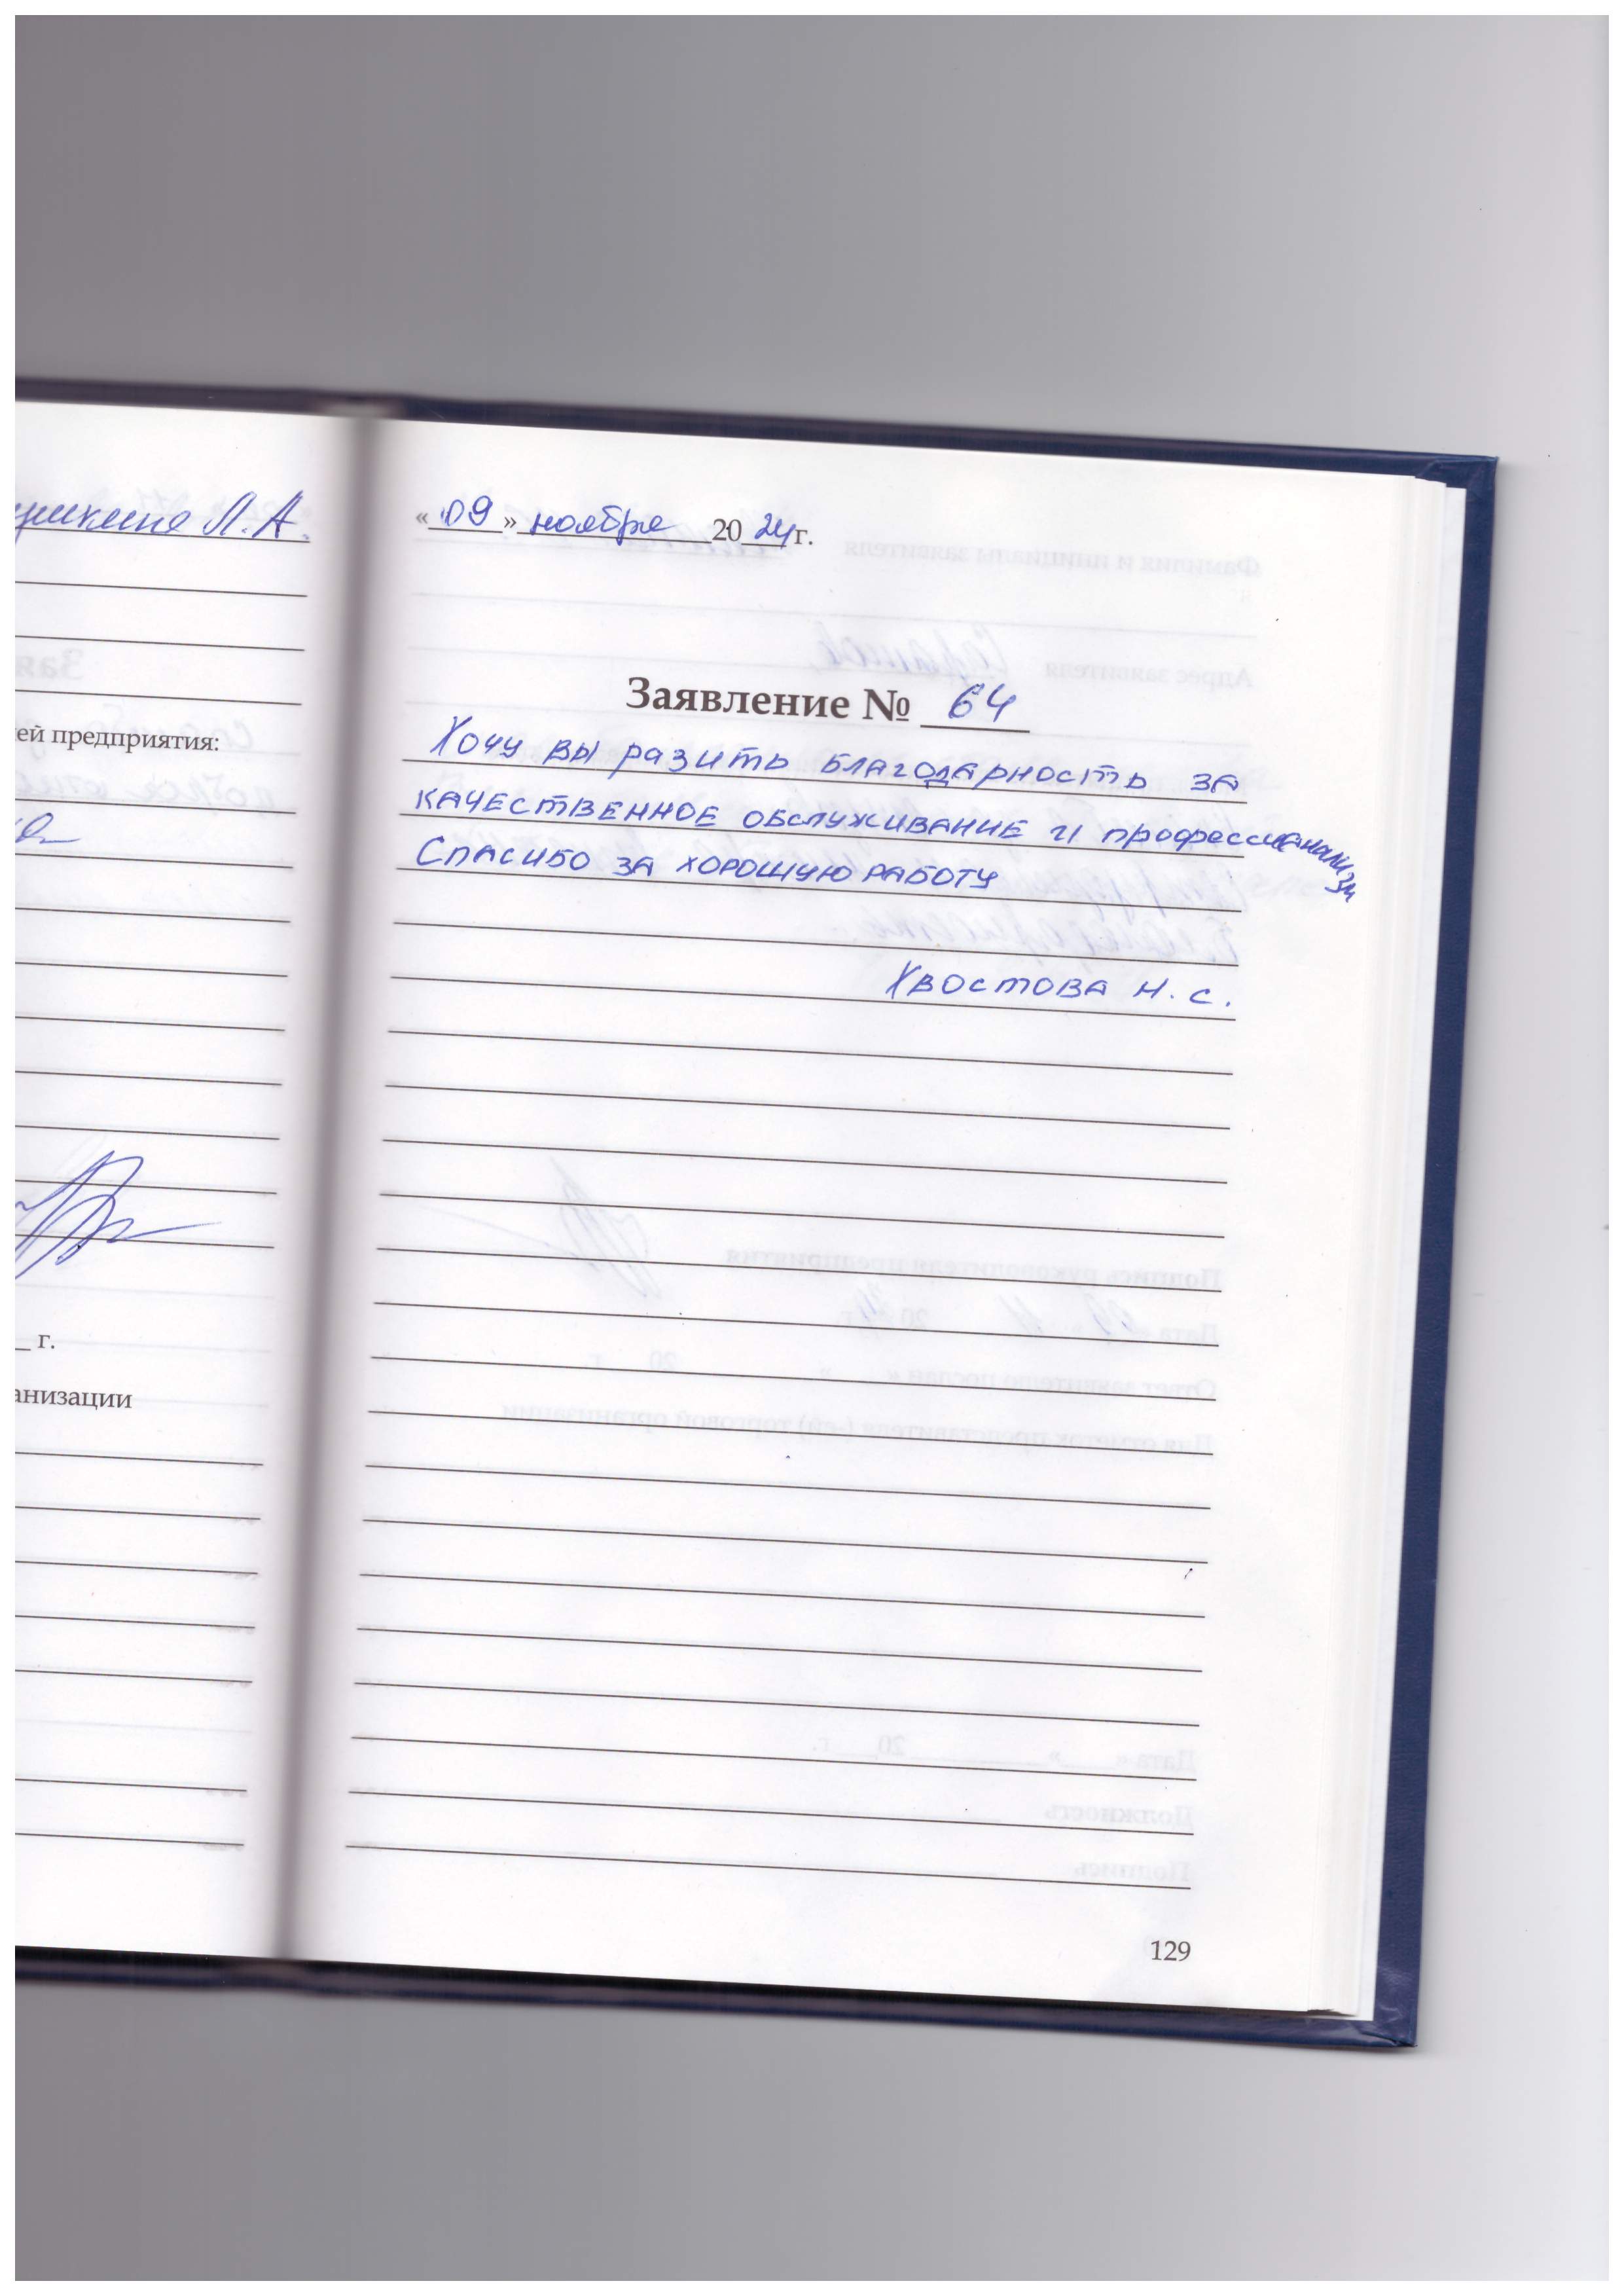 Л.А.
ей предприятия:
г.
анизации
«09» ноября 2024 г.
Заявление № 64
Хочу вы разить благодарность за
качественное обслуживание и профессианализм
Спасибо за хорошую работу
Хвостова Н.С.
129